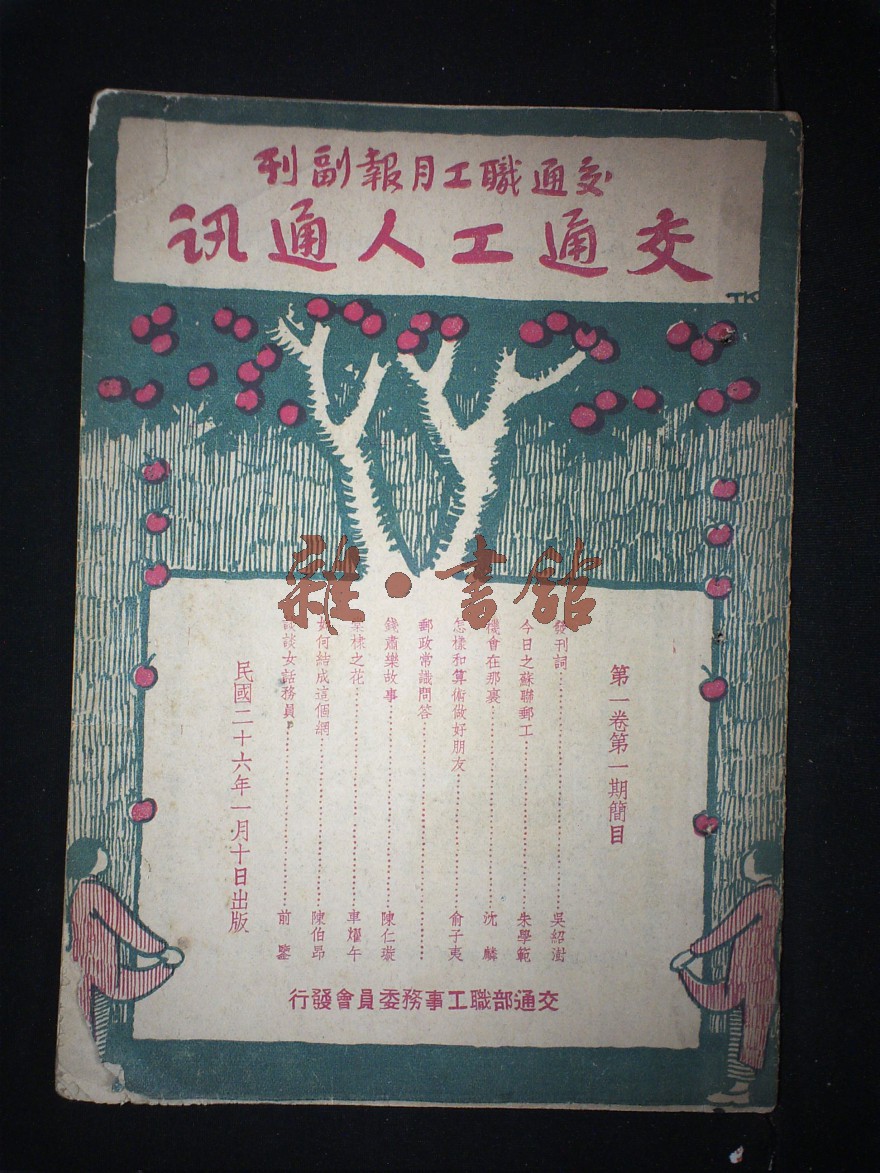 交通職工月報副刊
交通工人通訊
TK
第一卷第一期簡目
發刊詞……………………吳紹澍
今日之蘇聯郵工……………………朱學範
機會在那裏……………………沈麟
怎樣和算術做好朋友……………………俞子夷
郵政常識問答……………………
錢肅樂故事……………………陳仁璇
棣之花……………………車燿午
如何結成這個網……………………陳伯昂
談談女話務員……………………前鑒
民國二十六年一月十日出版
交通部職工事務委員會發行
雜·書館